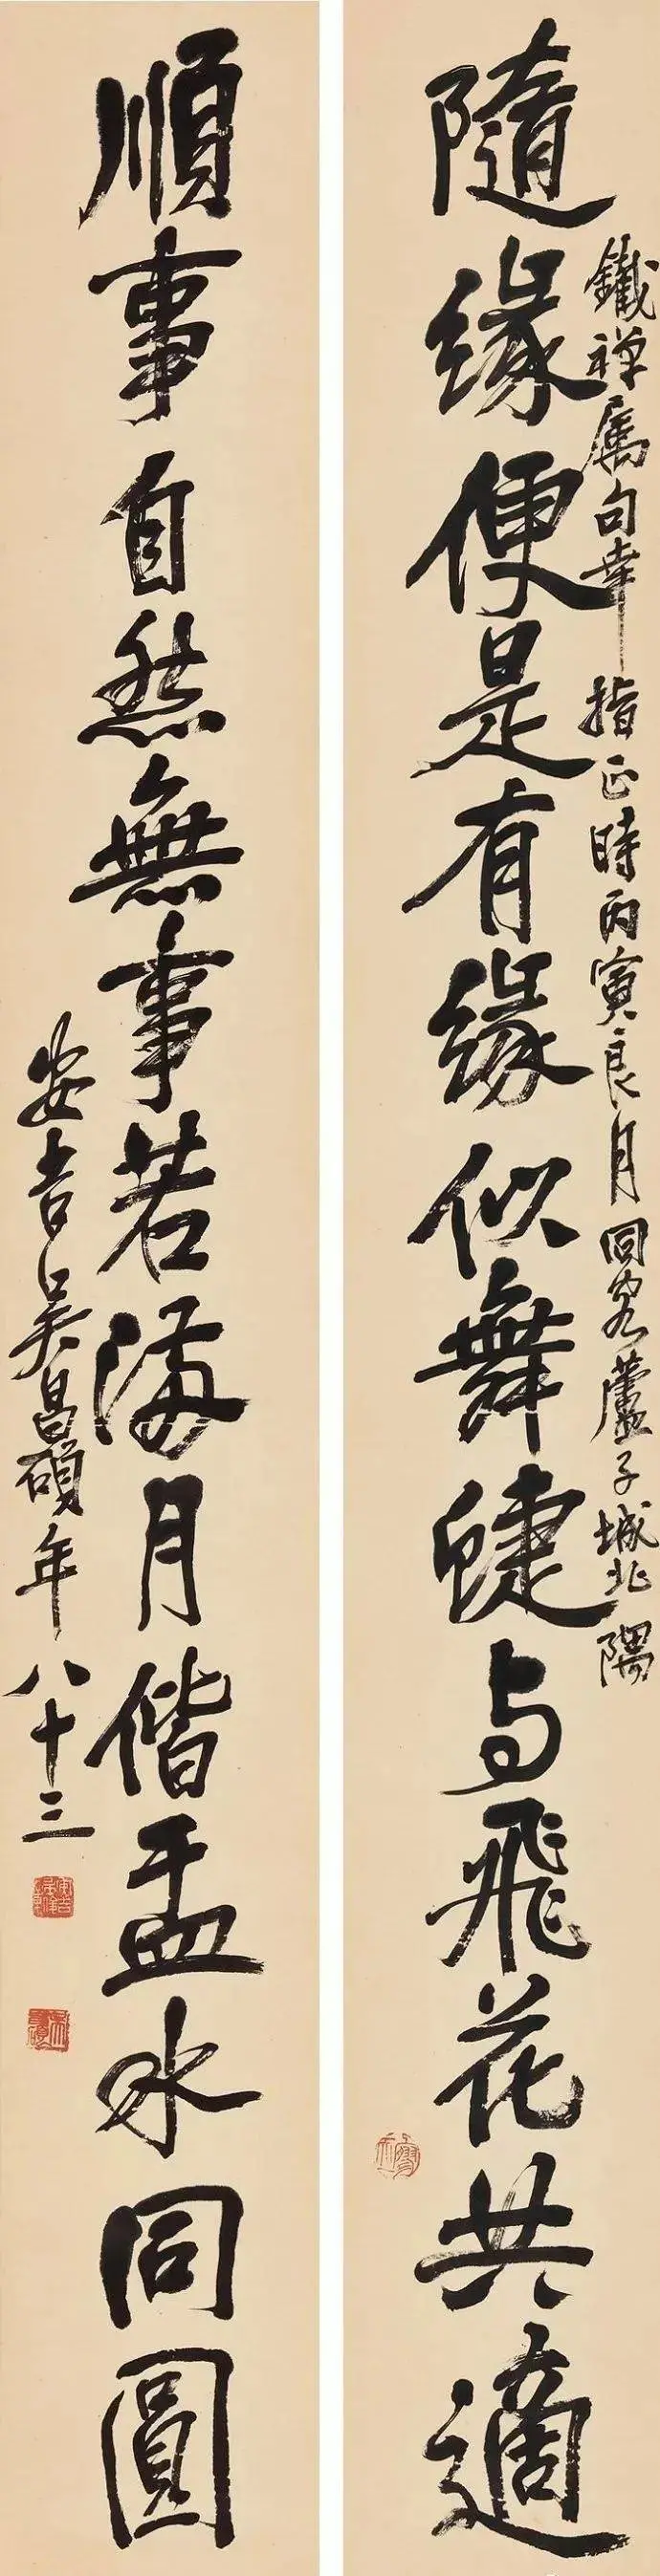 鐵禅属句幸指正時丙寅良月同客蘆子城北隅
隨緣便是有緣似舞蜨与飛花共適
順事自然無事若满月偕盂水同圓
安吉吴昌碩年八十三